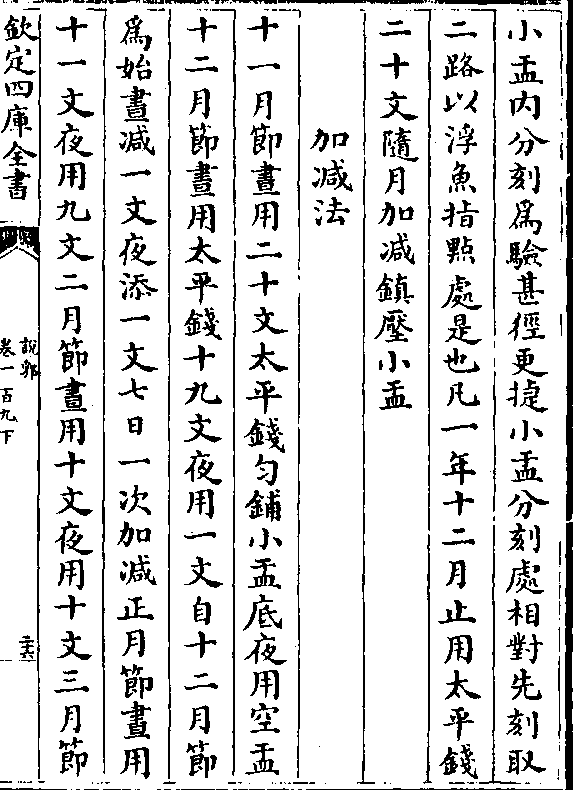 小盂内分刻爲驗甚徑更捷小盂分刻處相對先刻取
二路以浮魚指點處是也凡一年十二月止用太平錢
二十文隨月加減鎮壓小盂
加減法
十一月節晝用二十文太平錢匀鋪小盂底夜用空盂
十二月節晝用太平錢十九文夜用一文自十二月節
爲始晝减一文夜添一文七日一次加减正月節晝用
十一文夜用九文二月節晝用十文夜用十文三月節
欽定四庫全書
說郛
卷一百九下
二十六